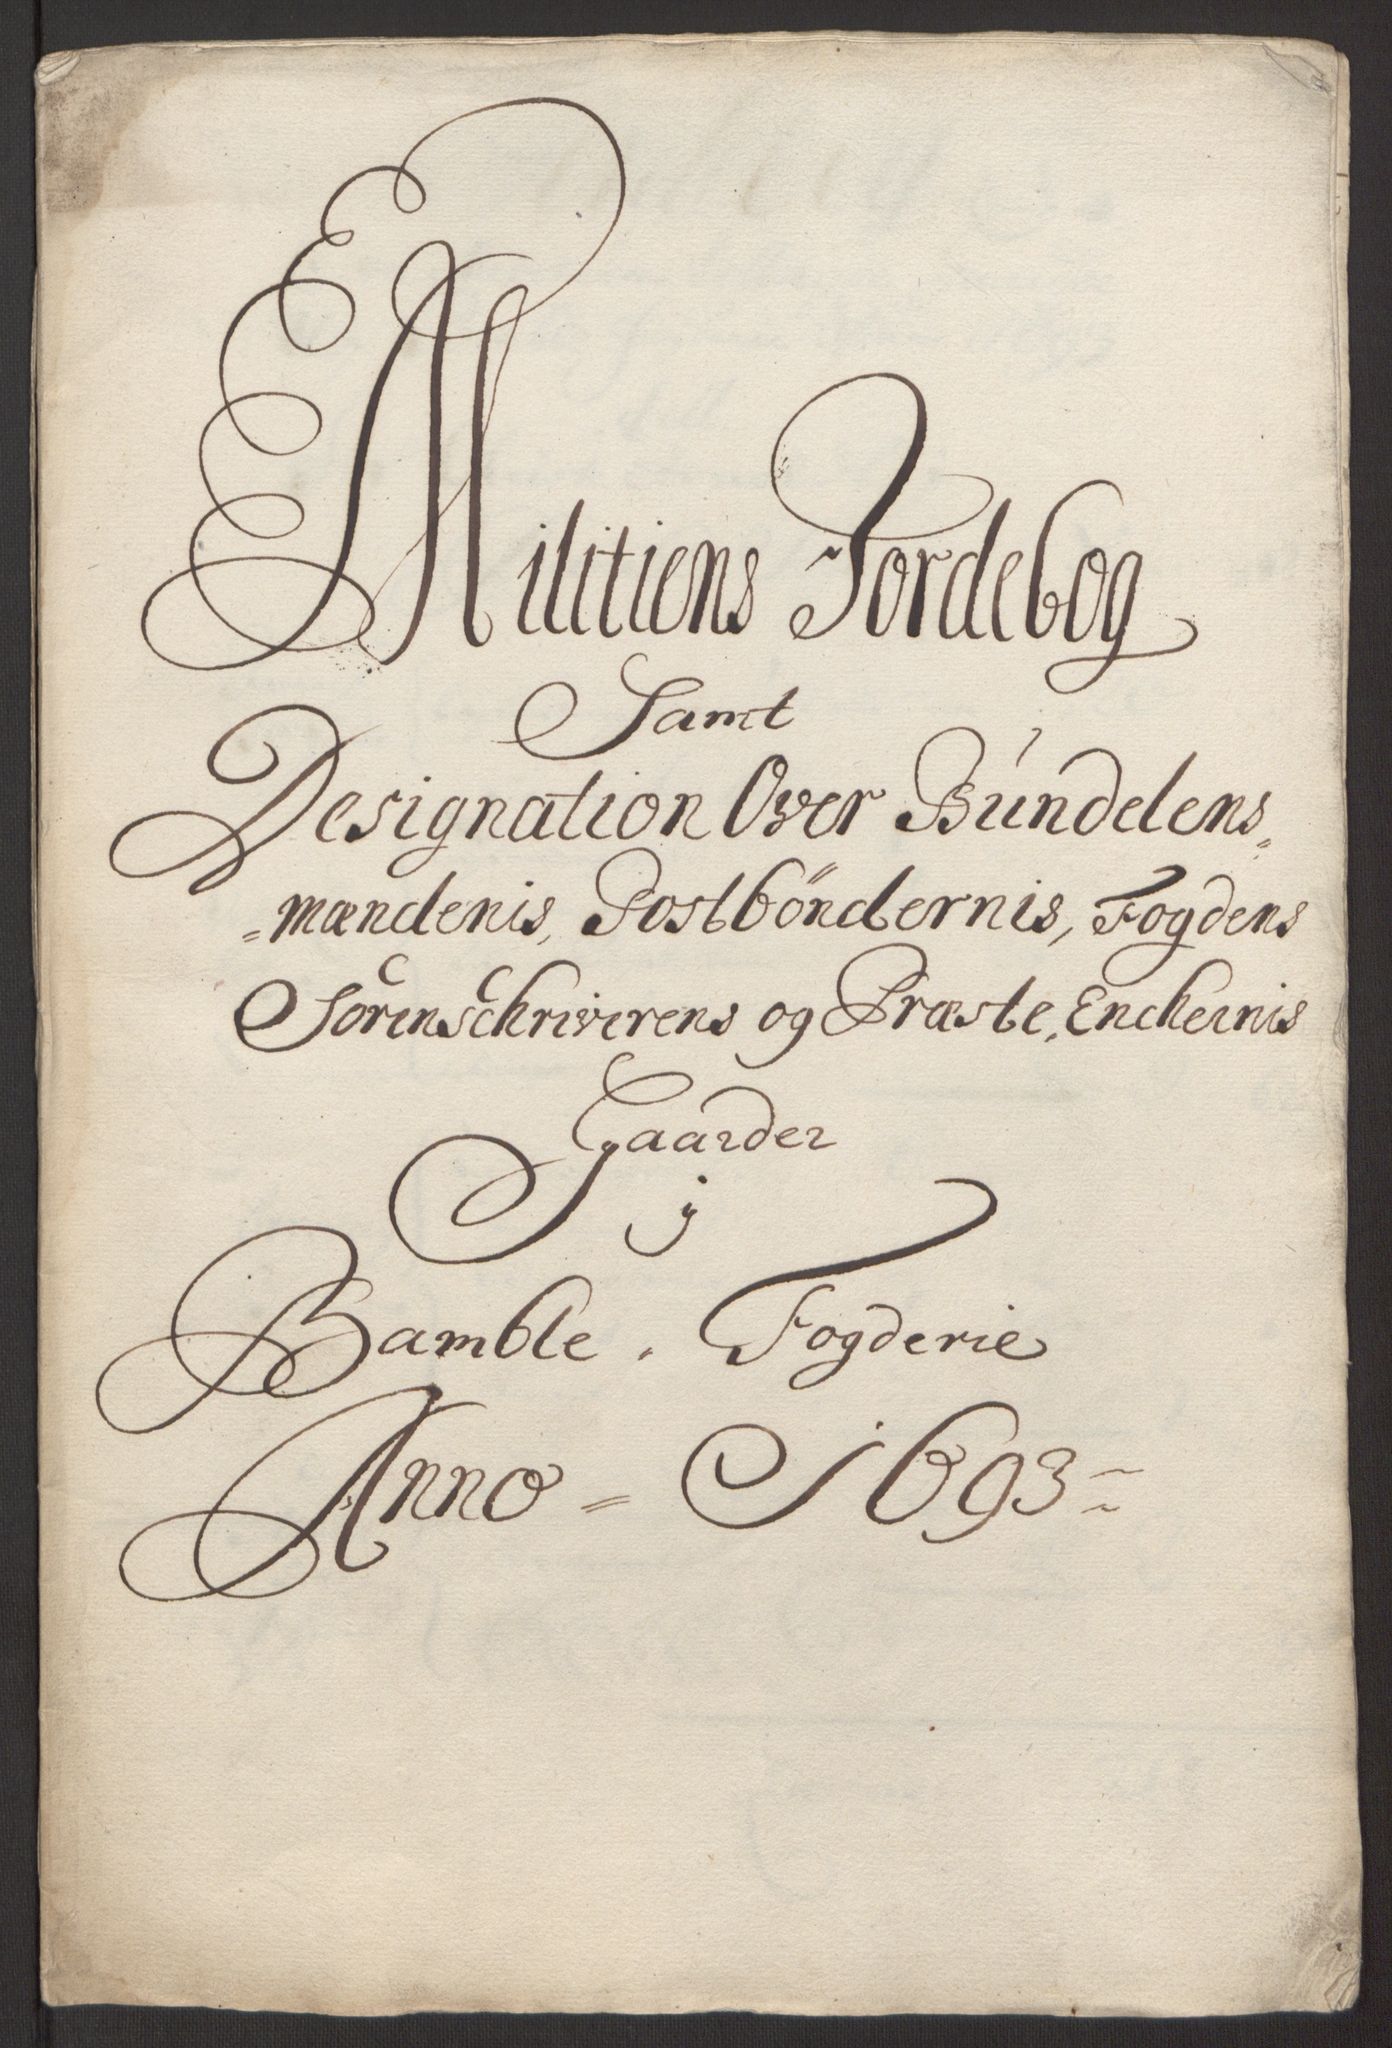 Militiens Jordebog
Samt
Designation Over Bundelens=
=mændenis, Postböndernis, Fogdens
Sorenschriverens og Præste, Enckernis
Gaarder
j
Bamble. Fogderie
Anno = 1693